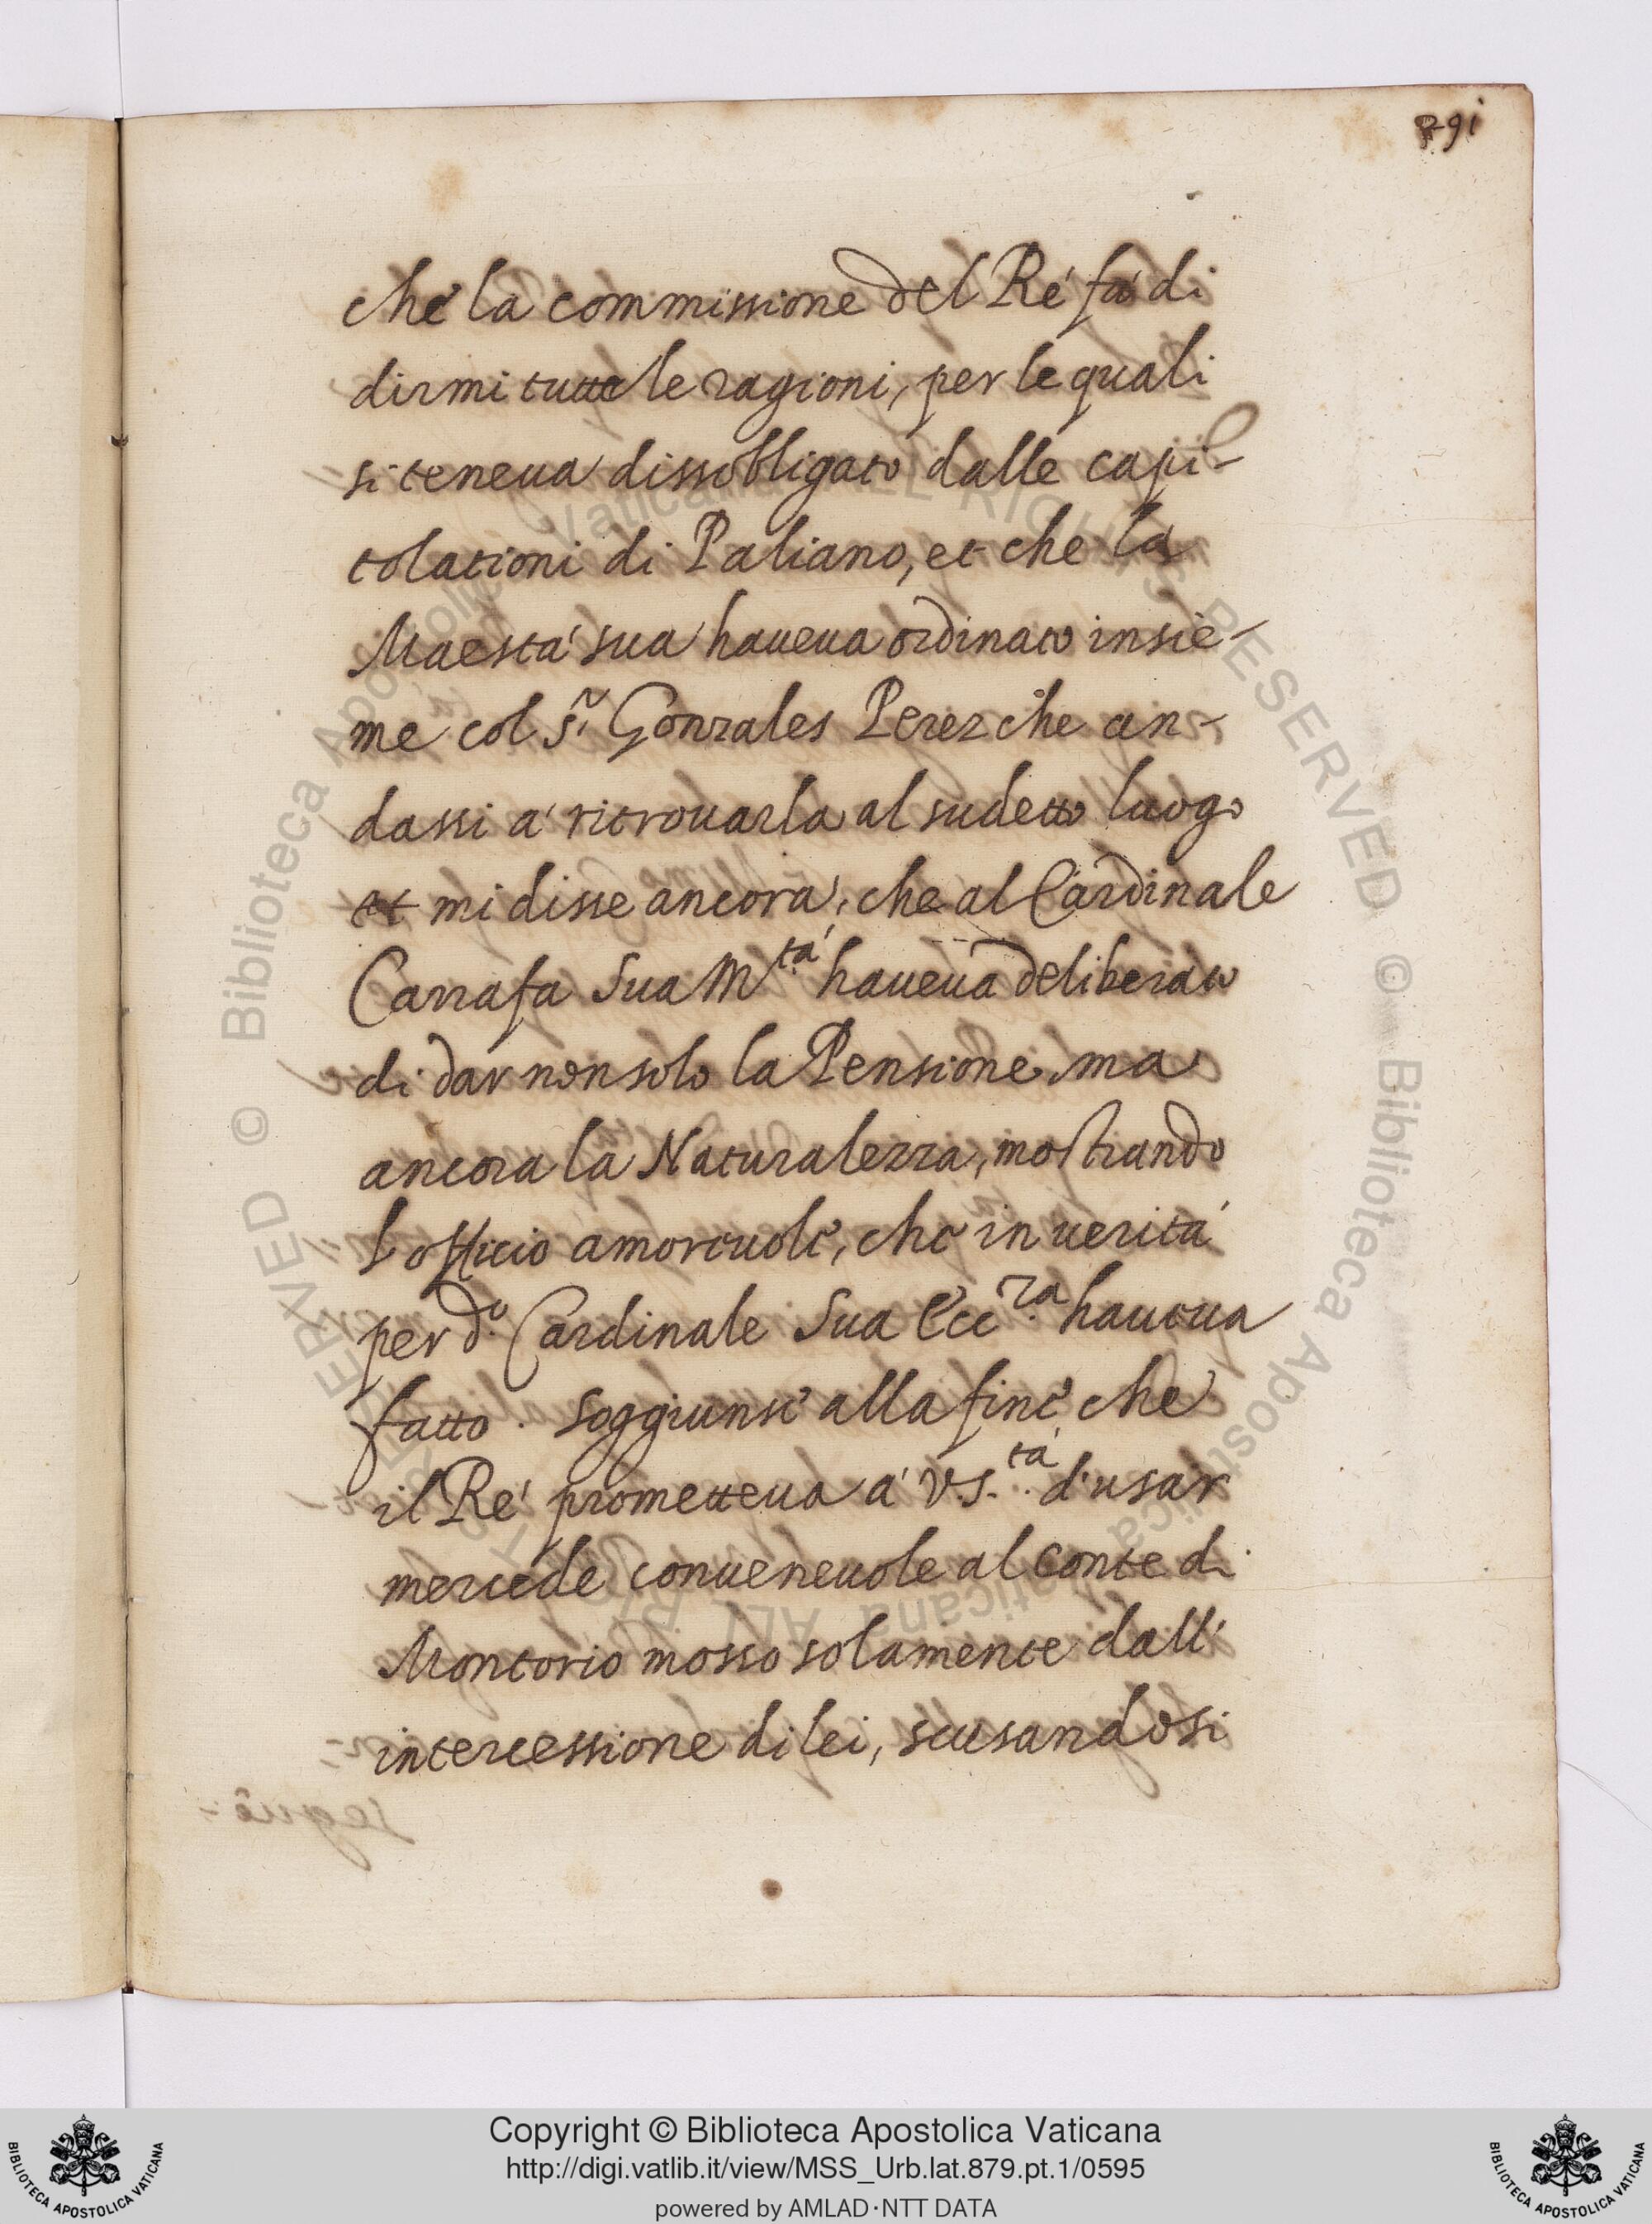 291
che la commissione del Ré fú di
dirmi tutte le ragioni, per le quali
si teneua dissobligato dalle capi-
tolationi di Paliano, et che la
Maestá sua haueua ordinato insie-
me col s.r Gonzales Perez che an-
dassi á ritrouarla al sudetto luogo
et mi disse ancora, che al Cardinale
Carrafa Sua M.tá haueua deliberato
di dar non solo la Pensione, ma
ancora la Naturalezza, mostrando
l'officio amoreuole, che in ueritá
per d.o Cardinale Sua Ecc.za haueua
fatto. Soggiunse alla fine che
il Ré prometteua á V.S.tá d'usar
mercede conueneuole al Conte di
Montorio mosso solamente dall'
intercessione di lei, scusandosi
© Biblioteca Apostolica Vaticana ALL RIGHTS RESERVED
© Biblioteca Apostolica Vaticana ALL RIGHTS RESERVED
Copyright © Biblioteca Apostolica Vaticana
http://digi.vatlib.it/view/MSS_Urb.lat.879.pt.1/0595
powered by AMLAD·NTT DATA
BIBLIOTECA APOSTOLICA VATICANA
BIBLIOTECA APOSTOLICA VATICANA